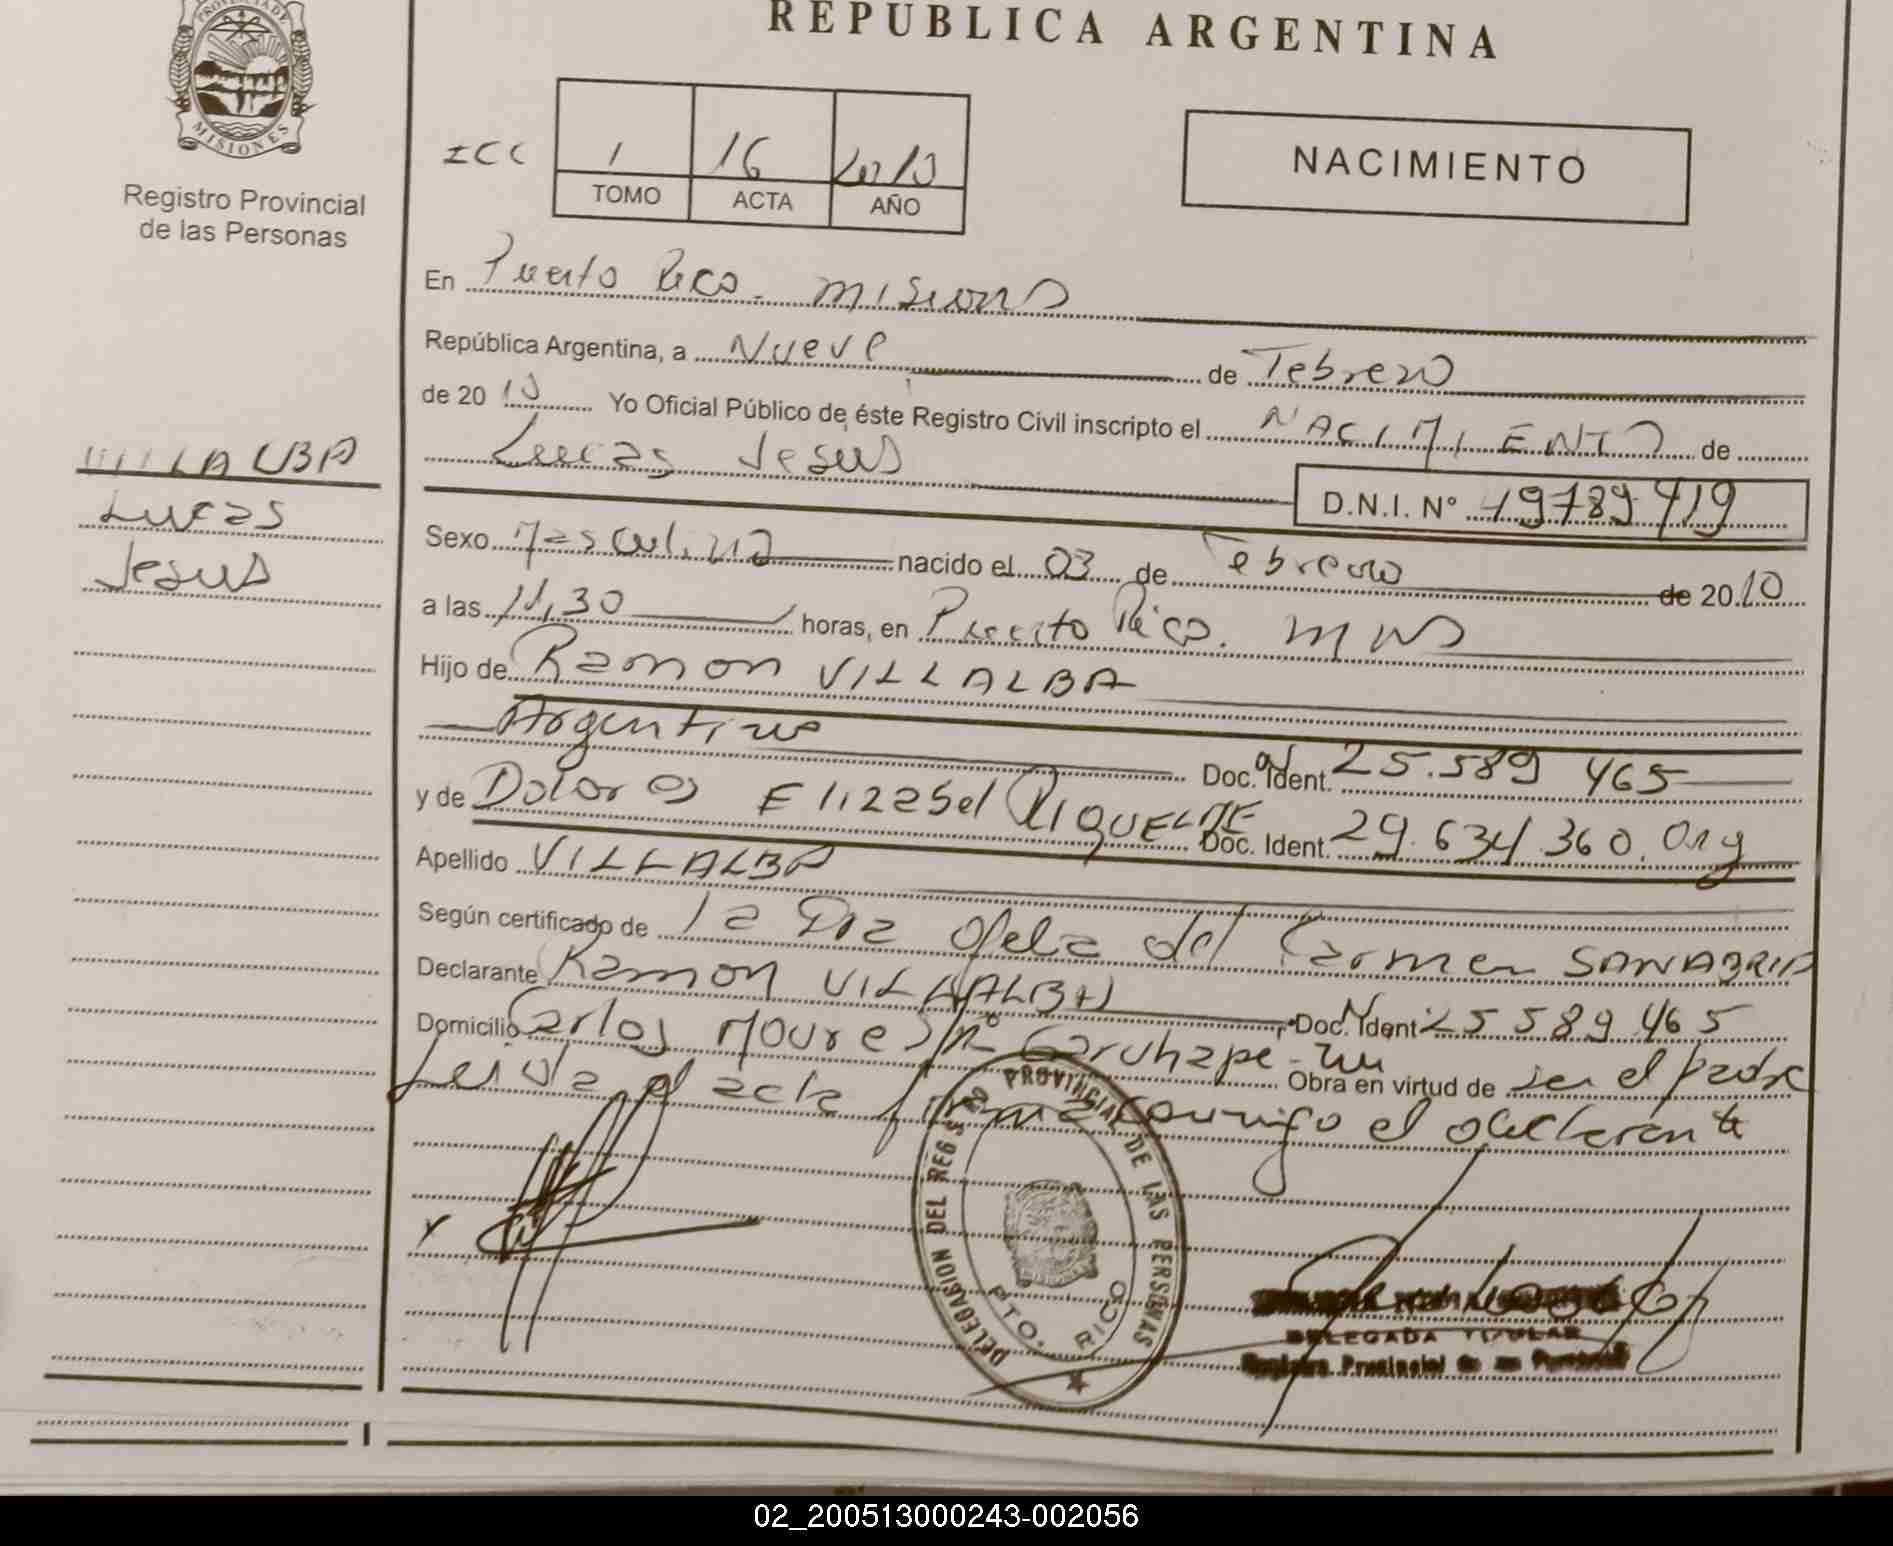 PROVINCIA DE
MISIONES
Registro Provincial
de las Personas
VILLALBA
Lucas
Jesus
REPUBLICA ARGENTINA
ICC 1 16 2010
TOMO ACTA AÑO
NACIMIENTO
En Puerto Rico - Misiones
República Argentina, a Nueve de Febrero
de 2010 Yo Oficial Público de éste Registro Civil inscripto el NACIMIENTO de
Lucas Jesus D.N.I. Nº 49789419
Sexo Masculino nacido el 03 de Febrero de 2010
a las 11,30 horas, en Puerto Rico. Mns
Hijo de Ramon VILLALBA
Argentino Doc. Ident. 25.589 465
y de Dolores Elizabel RIQUELME Doc. Ident. 29.634.360. Arg
Apellido VILLALBA
Según certificado de la Dra Ofelia del Carmen SANABRIA
Declarante Ramon VILLALBA Doc. Ident 25 589 465
Domicilio Carlos Moure S/nº Garuhape - Obra en virtud de ser el padre
Leida el acta firma conmigo el declarante
DELEGACION DEL REG STRO PROVINCIAL DE LAS PERSONAS
PTO. RICO
DELEGADA TITULAR
Registro Provincial de las Personas
02_200513000243-002056